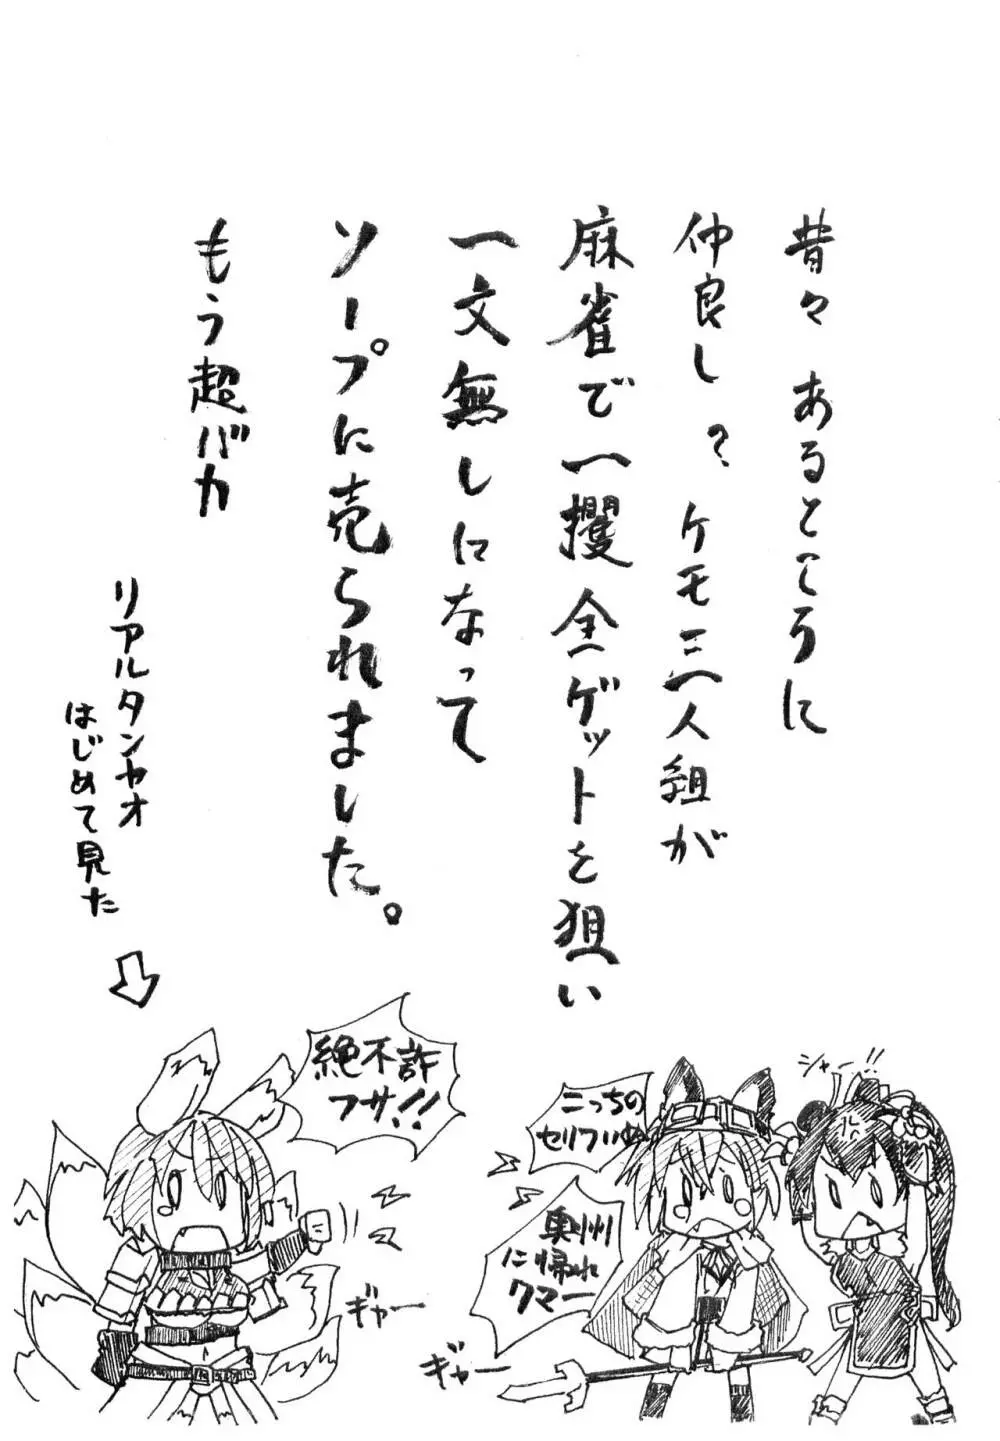 昔々あるところに
仲良し?ケモ三人組が
麻雀で一攫全ゲットを狙い
一文無しになって
ソープに売られました。
もう超バカ
リアルタンヤオ
はじめて見た
シャー!!
こっちの
セリフいぬ
奥州
に帰れ
クマー
ギャー
絶不許
フサ!!
ギャー